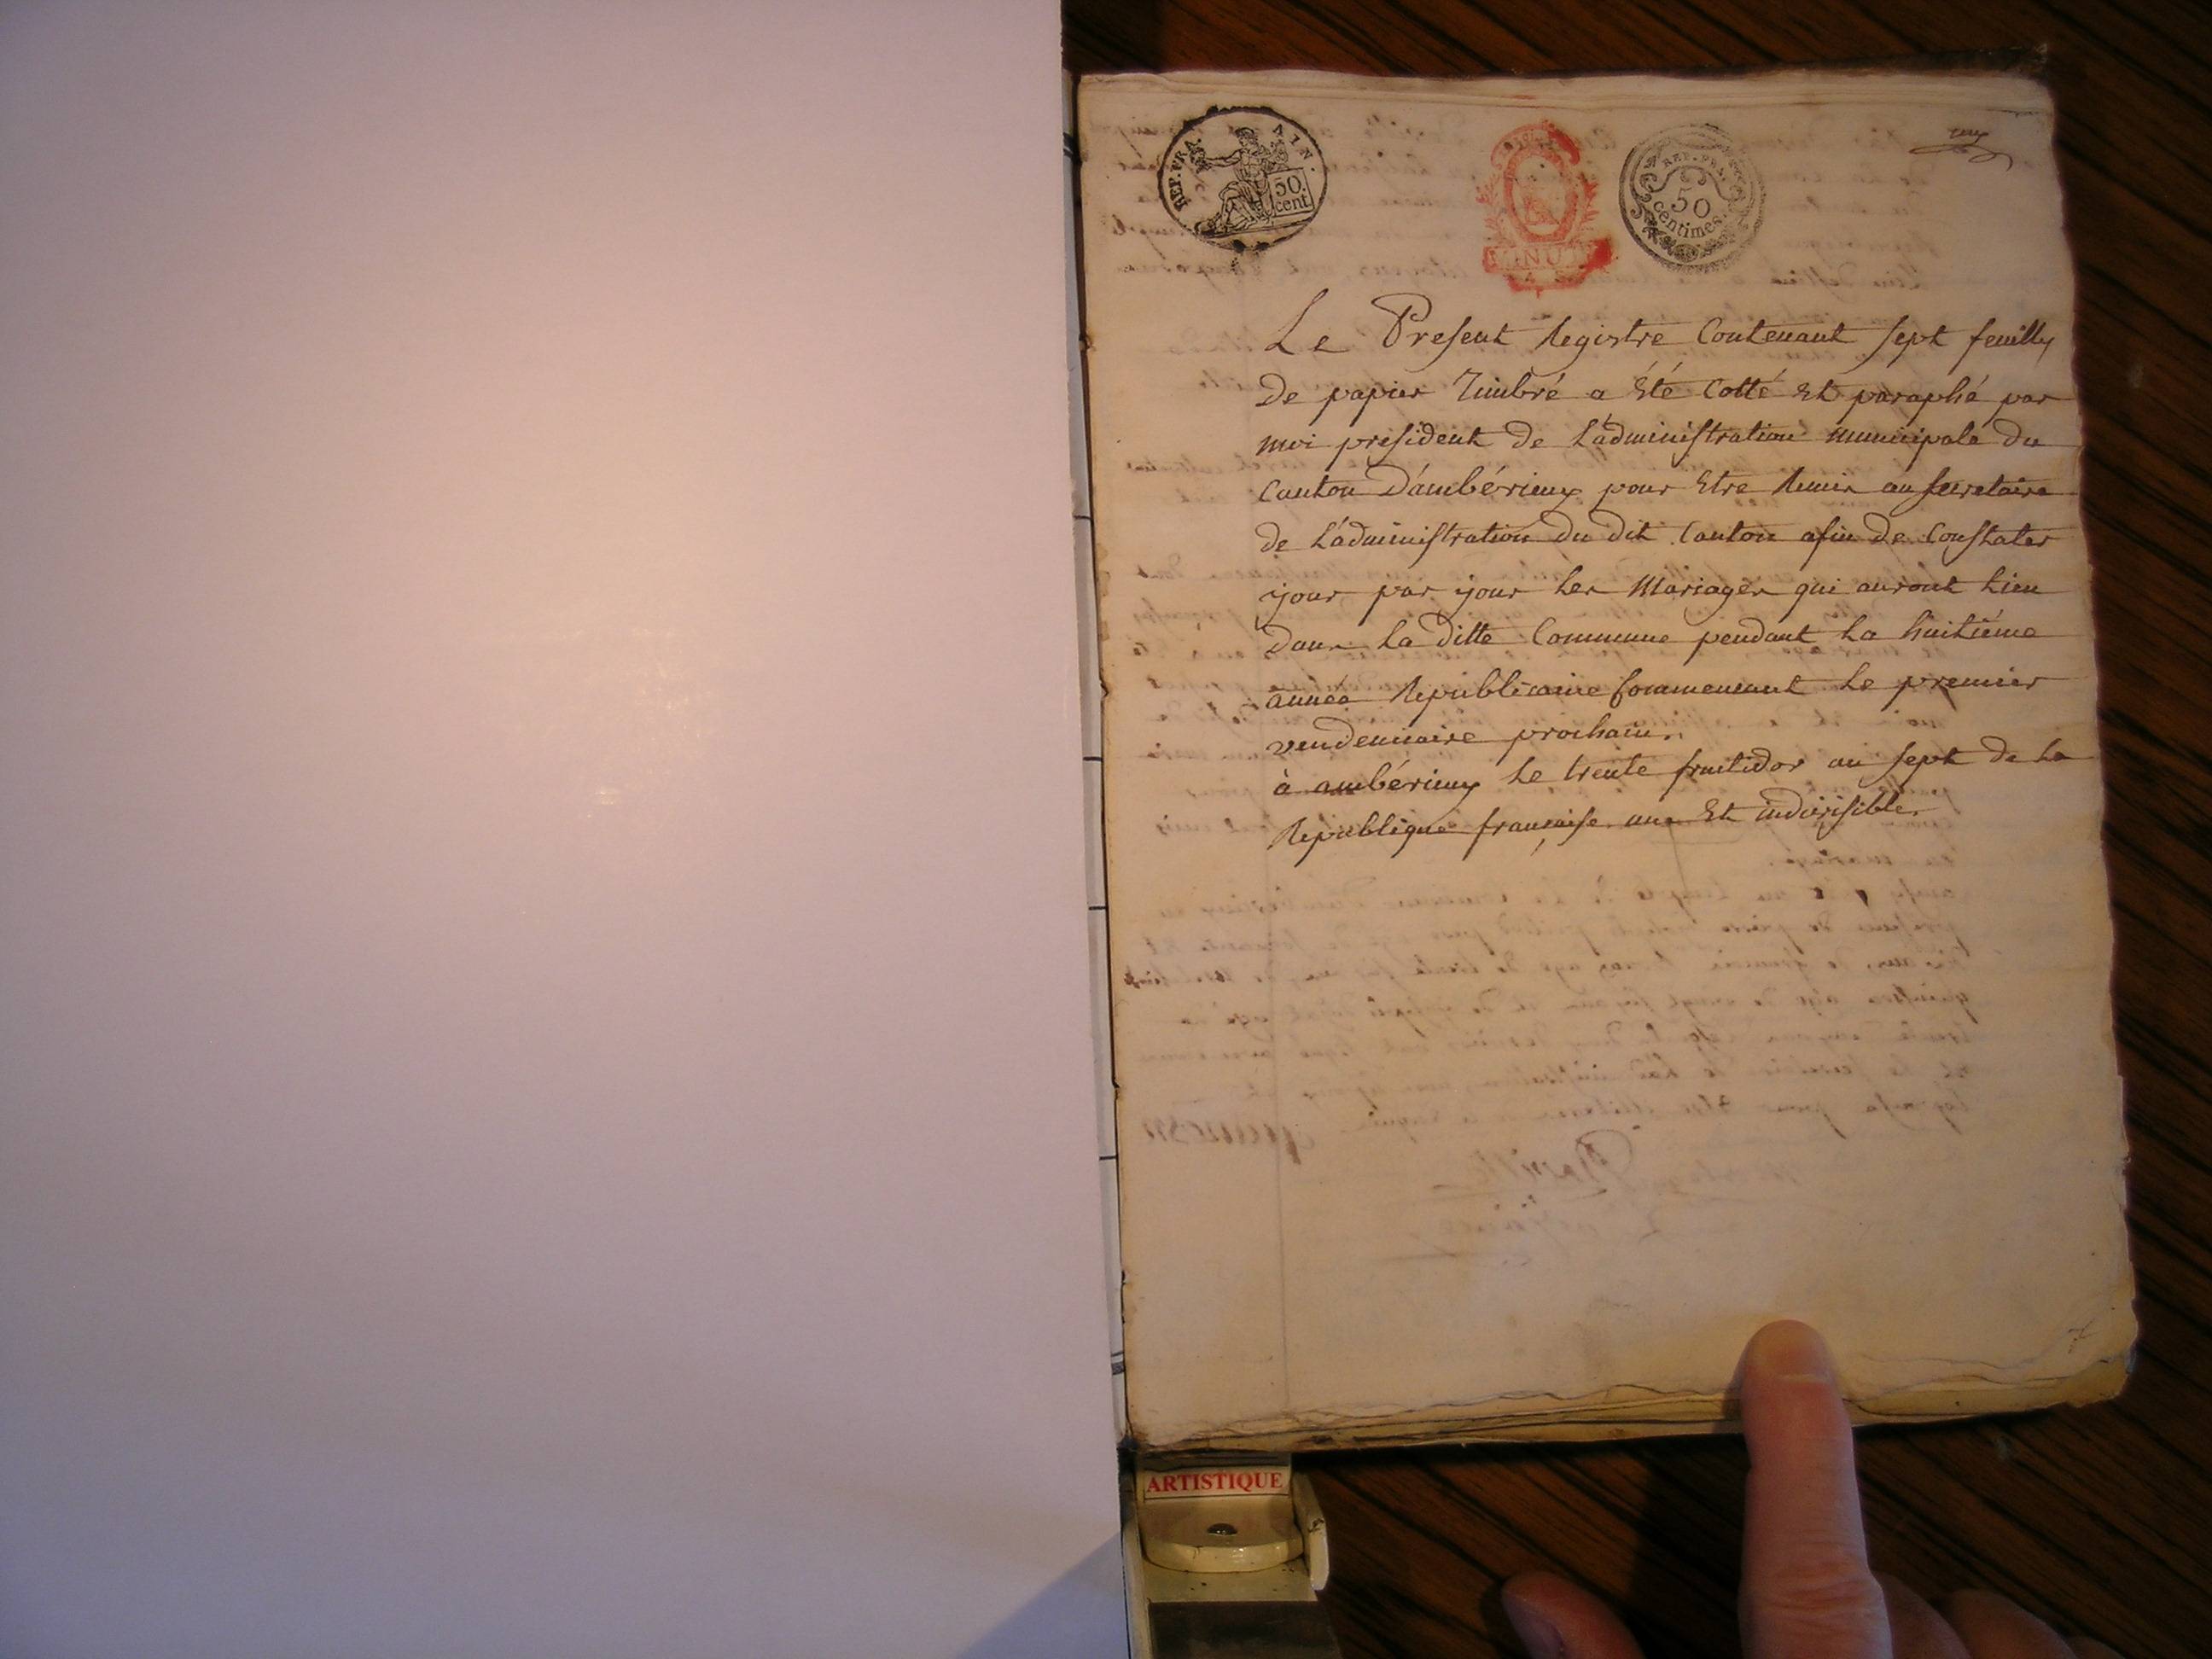 REP. FRA. AIN.
50.
cent.
MINUTE
REP. FRA.
50
centimes.
un
Le Present Registre Contenant sept feuilles
de papier Timbré a Été Cotté Et paraphé par
moi president de L'administration municipale du
Canton D'ambérieux pour Etre Remis au secretaire
de L'administration du dit Canton afin de Constater
jour par jour Les Mariages qui auront Lieu
Dans La ditte Commune pendant La huitiéme
année Republicaine Commencant Le premier
vendemiaire prochain.
à ambérieux Le trente fructidor an sept de La
Republique française une Et indivisible.
ARTISTIQUE